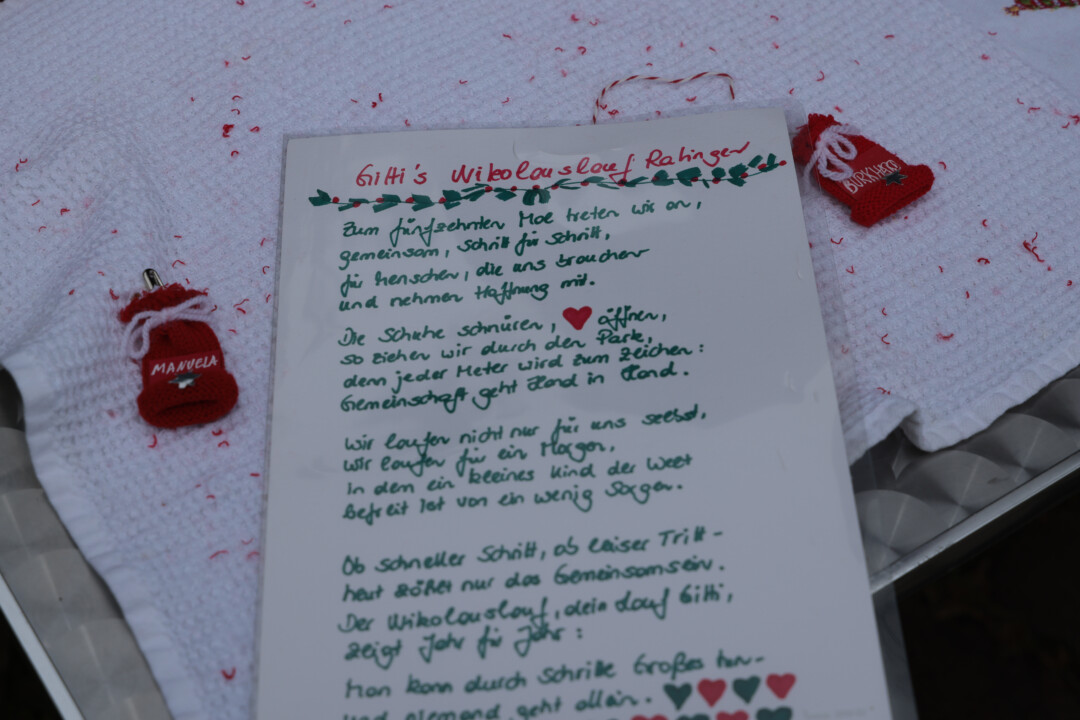 Gitti's Nikolauslauf Ratingen
Zum fünfzehnten Mal treten wir an,
gemeinsam, Schritt für Schritt,
für Menschen, die uns brauchen
und nehmen Hoffnung mit.
Die Schuhe schnüren, ♥ öffnen,
so ziehen wir durch den Park,
denn jeder Meter wird zum Zeichen:
Gemeinschaft geht Hand in Hand.
Wir laufen nicht nur für uns selbst,
wir laufen für ein Morgen,
in dem ein kleines Kind der Welt
befreit ist von ein wenig Sorgen.
Ob schneller Schritt, ob leiser Tritt -
heut zählt nur das Gemeinsamsein.
Der Nikolauslauf, dein Lauf Gitti,
zeigt Jahr für Jahr:
Man kann durch Schritte Großes tun -
und niemand geht allein.
MANUELA
BURKHARD